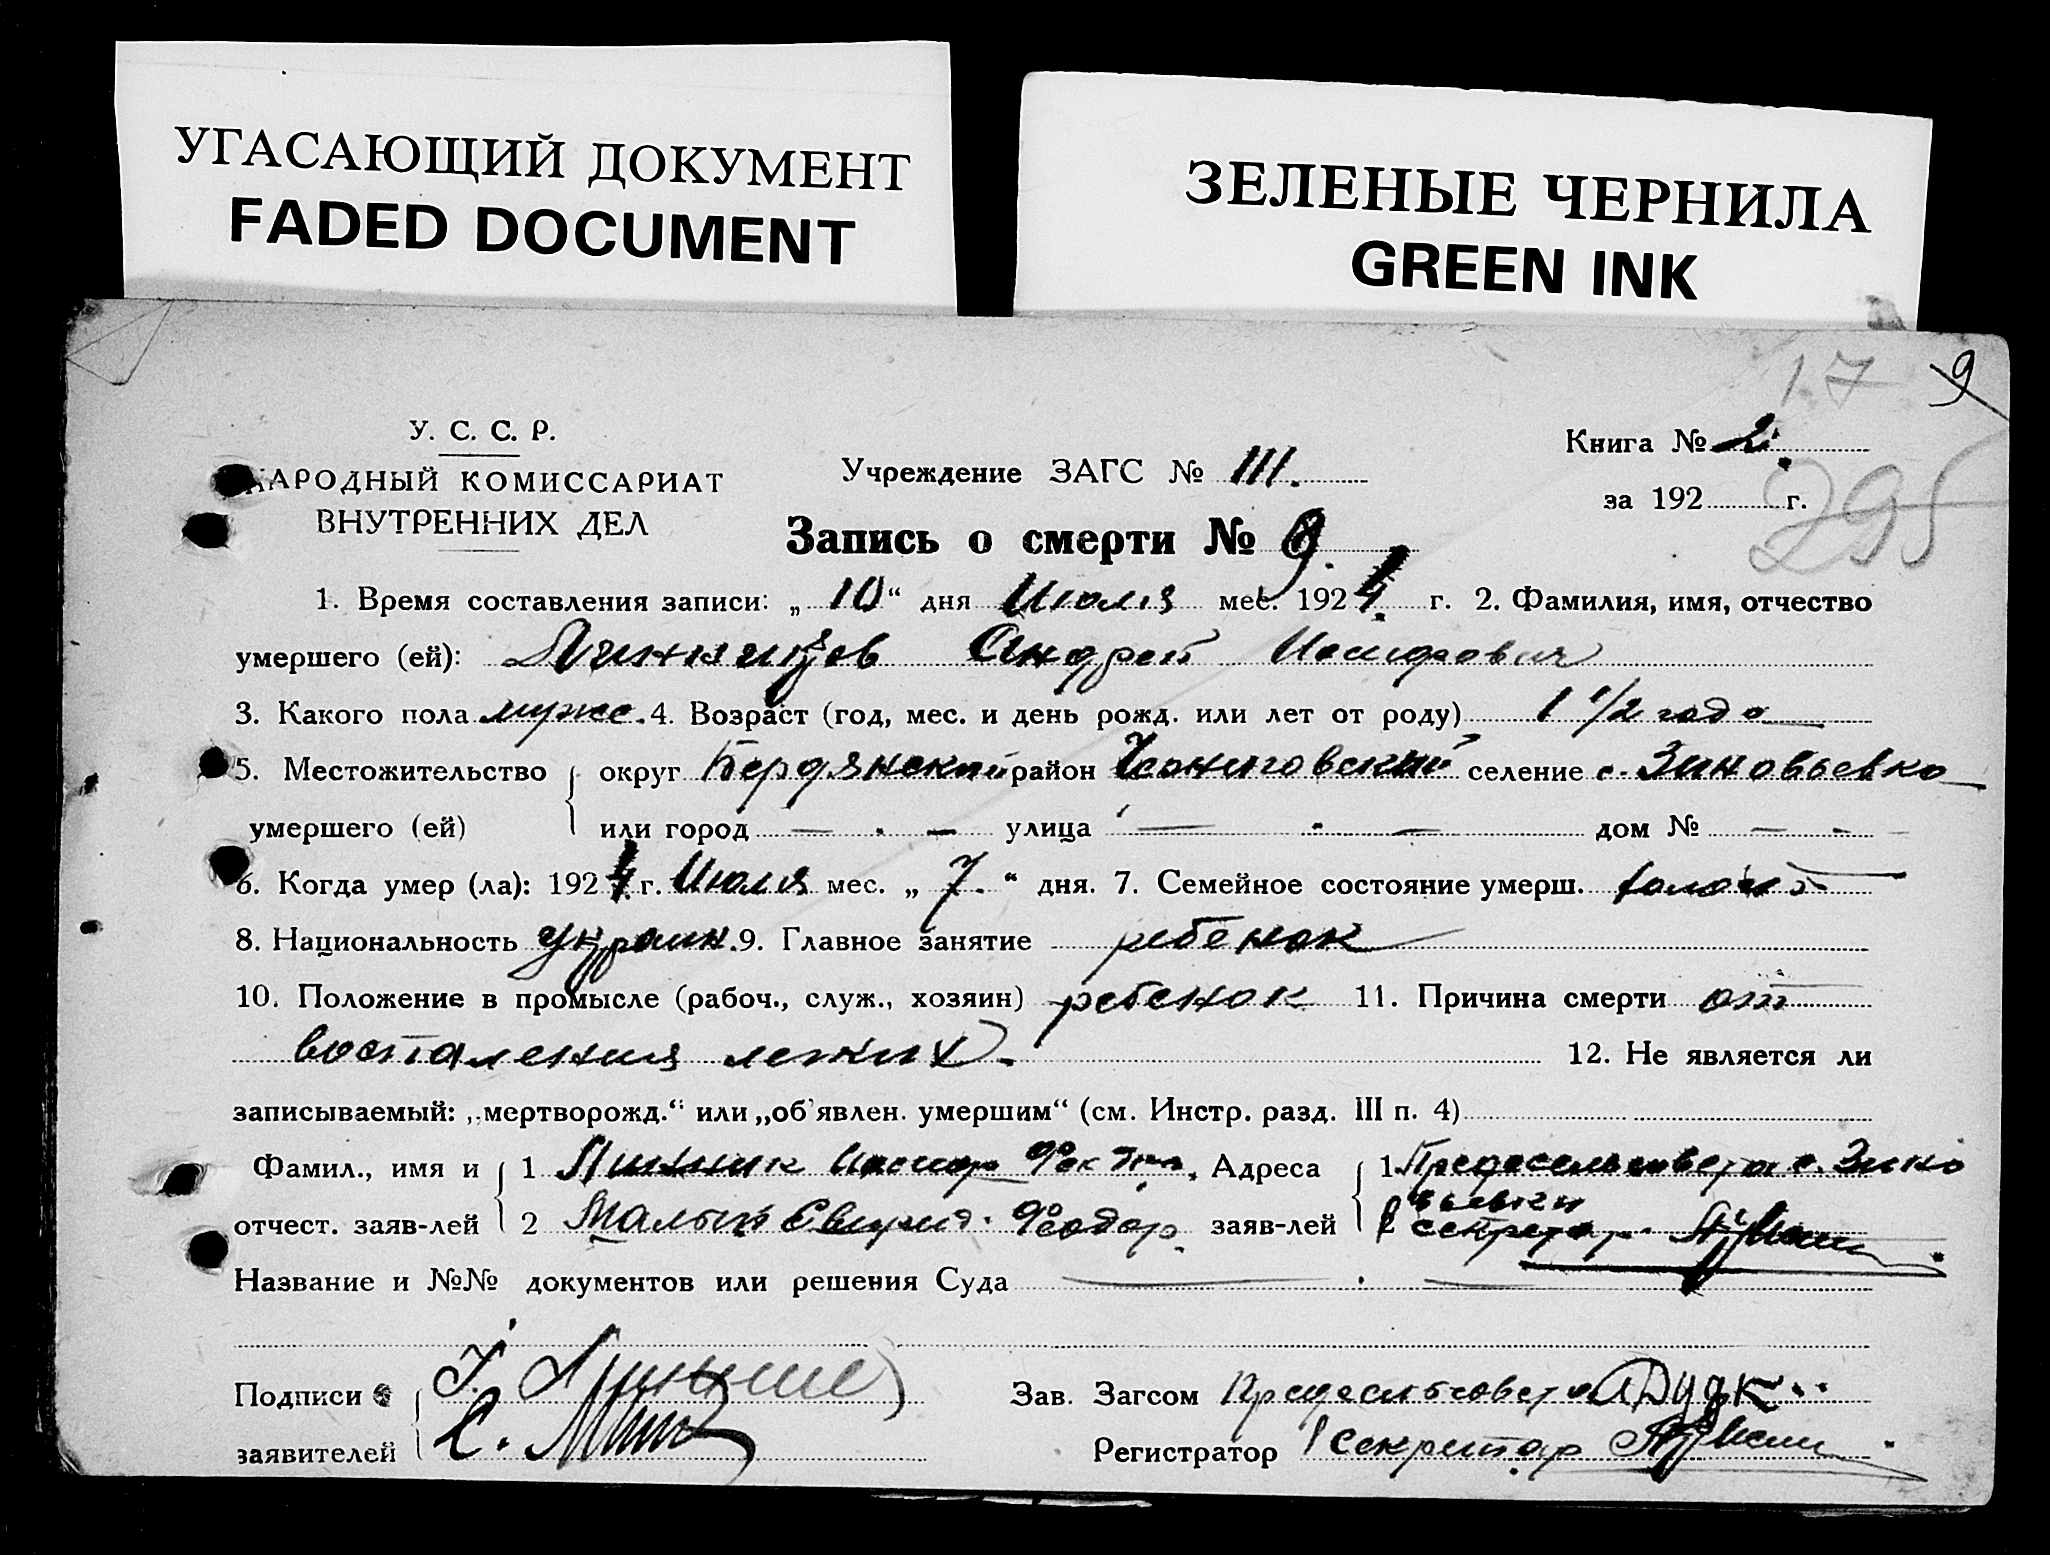 УГАСАЮЩИЙ ДОКУМЕНТ
FADED DOCUMENT
ЗЕЛЕНЫЕ ЧЕРНИЛА
GREEN INK
17 9
295
У. С. С. Р.
НАРОДНЫЙ КОМИССАРИАТ
ВНУТРЕННИХ ДЕЛ
Учреждение ЗАГС № III.
Книга № 2.
за 192 г.
Запись о смерти № 9.
1. Время составления записи: „ 10 “ дня Июля мес. 1924 г. 2. Фамилия, имя, отчество
умершего (ей): Андрей
3. Какого пола мужс. 4. Возраст (год, мес. и день рожд. или лет от роду) 1 1/2 года
5. Местожительство округ Бердянский район селение с. Зиновьевка
умершего (ей) или город — . — улица — . — дом № — -
6. Когда умер (ла): 1924 г. Июля мес. „ 7. “ дня. 7. Семейное состояние умерш. холост
8. Национальность украин. 9. Главное занятие ребенок
10. Положение в промысле (рабоч., служ., хозяин) ребенок 11. Причина смерти от
воспаления легких. 12. Не является ли
записываемый: „мертворожд.“ или „об'явлен. умершим“ (см. Инстр. разд. III п. 4)
Фамил., имя и 1 Адреса 1 Предсельсовета с. Зино
вьевки
отчест. заяв-лей 2 Малый Феодор. заяв-лей 2 секретар
Название и №№ документов или решения Суда — . —
Подписи Зав. Загсом Предсельсовета Дудк
заявителей Регистратор секритар